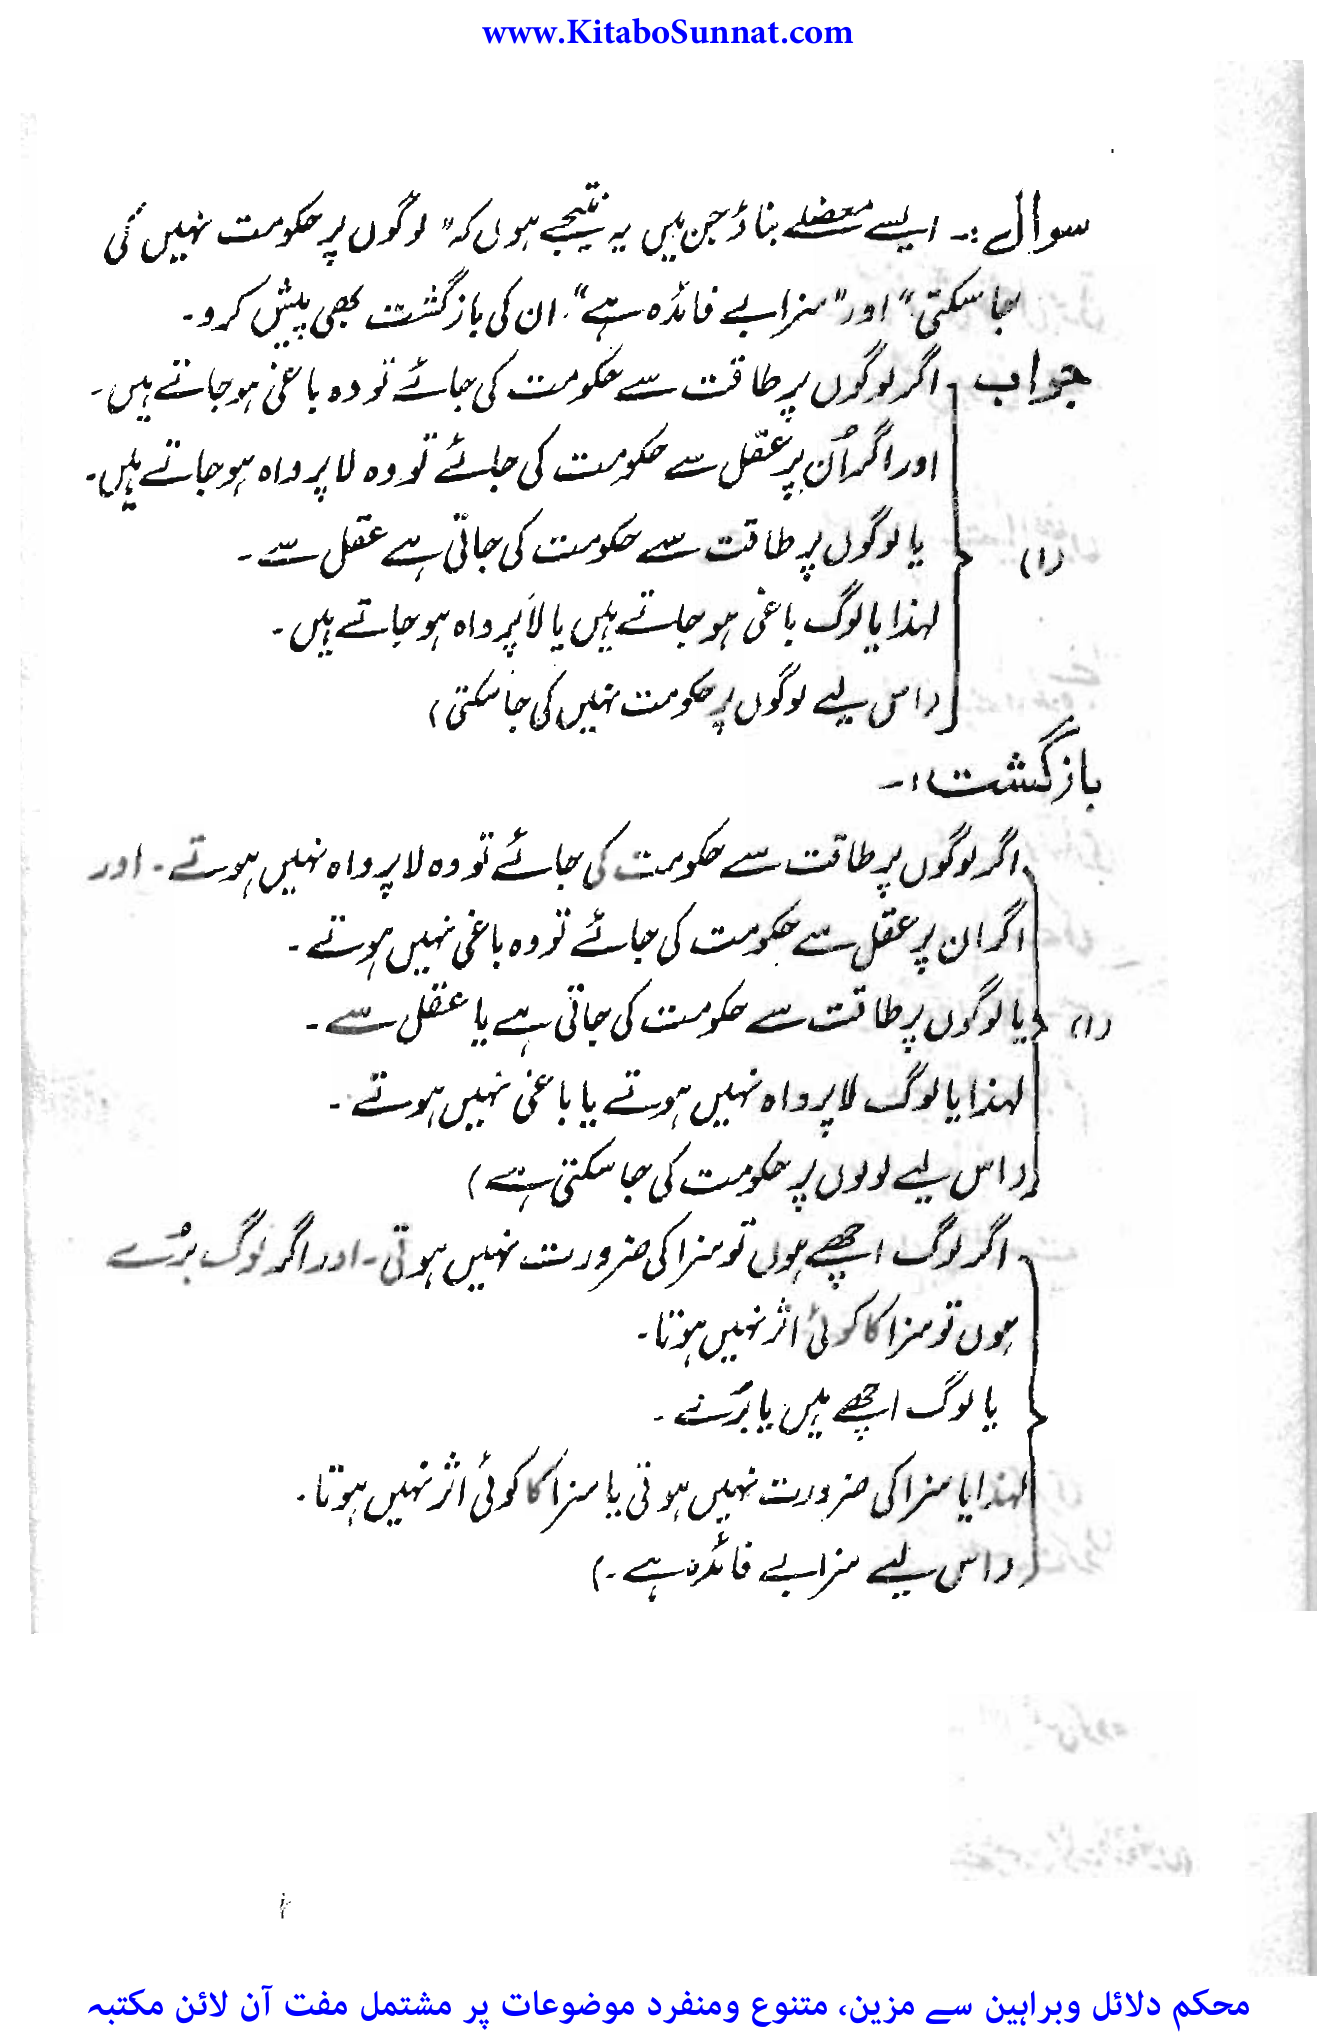 www.KitaboSunnat.com
سوال :۔ ایسے معضلے بناؤ جن میں یہ نتیجے ہوں کہ " لوگوں پر حکومت نہیں کی
جا سکتی " اور " سزا بے فائدہ ہے " ۔ ان کی بازگشت بھی پیش کرو ۔
جواب اگر لوگوں پر طاقت سے حکومت کی جائے تو وہ باغی ہو جاتے ہیں ۔
اور اگر اُن پر عقل سے حکومت کی جائے تو وہ لا پرواہ ہو جاتے ہیں ۔
(۱) یا لوگوں پر طاقت سے حکومت کی جاتی ہے عقل سے ۔
لہذا یا لوگ باغی ہو جاتے ہیں یا لا پرواہ ہو جاتے ہیں ۔
(اس لیے لوگوں پر حکومت نہیں کی جا سکتی)
بازگشت :۔
اگر لوگوں پر طاقت سے حکومت کی جائے تو وہ لا پرواہ نہیں ہوتے ۔ اور
اگر ان پر عقل سے حکومت کی جائے تو وہ باغی نہیں ہوتے ۔
(۱) یا لوگوں پر طاقت سے حکومت کی جاتی ہے یا عقل سے ۔
لہذا یا لوگ لا پرواہ نہیں ہوتے یا باغی نہیں ہوتے ۔
(اس لیے لوگوں پر حکومت کی جا سکتی ہے)
اگر لوگ اچھے ہوں تو سزا کی ضرورت نہیں ہوتی ۔ اور اگر لوگ بُرے
ہوں تو سزا کا کوئی اثر نہیں ہوتا ۔
یا لوگ اچھے ہیں یا بُرے ۔
لہذا یا سزا کی ضرورت نہیں ہوتی یا سزا کا کوئی اثر نہیں ہوتا ۔
(اس لیے سزا بے فائدہ ہے ۔)
محکم دلائل وبراہین سے مزین، متنوع ومنفرد موضوعات پر مشتمل مفت آن لائن مکتبہ